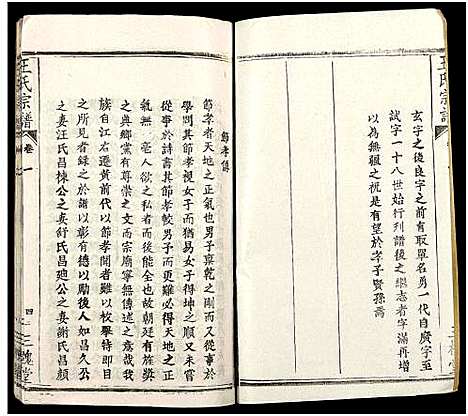 王氏宗譜
玄字之後良字之前有取單名勇一代自廣字至
試字一十八世始行列譜後之繼志者字滿再增
以為無疆之祝是有望於孝子賢孫焉
節孝傳
節孝者天地之正氣也男子稟乾之剛而又從事
學問其節孝視女子而易女子則質又柔順又未嘗
從事於詩書其節孝較男子而更難必得天地之正
氣無一毫人欲之私者而後能此故朝廷有旌典
之與鄉黨有尊崇之文而宗廟寧無傳述之意哉我
族自廷獻黃前代以節孝聞者難以枚舉特即耳目
之所見者錄之於譜以彰有德以勵後人如昌久公
之妻汪氏昌棟公之妻舒氏昌廸公之妻謝氏昌顏
王氏宗譜
卷一
四
三槐堂
三槐堂